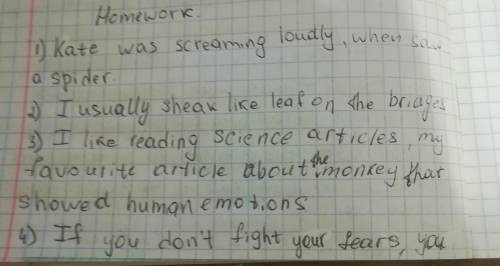 Homework.
1) Kate was screaming loudly, when saw
a spider.
2) I usually sheak like leaf on the briages
3) I like reading science articles, my
favourite article about the monkey that
showed human emotions
4) If you don't fight your fears, you